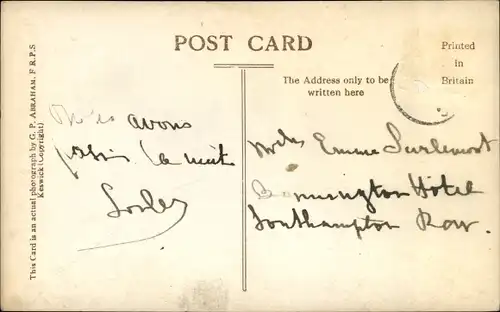 POST CARD
Printed
in
Britain
The Address only to be
written here
This Card is an actual photograph by G. P. ABRAHAM, F R.P.S
Keswick (Copyright)
avons
la nuit
Emma
Hotel
Southampton Row.